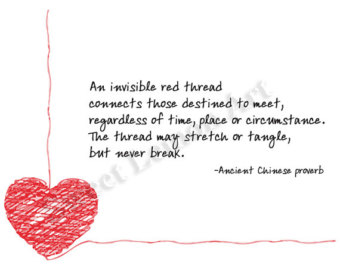 An invisible red thread
connects those destined to meet,
regardless of time, place or circumstance.
The thread may stretch or tangle,
but never break.
-Ancient Chinese proverb